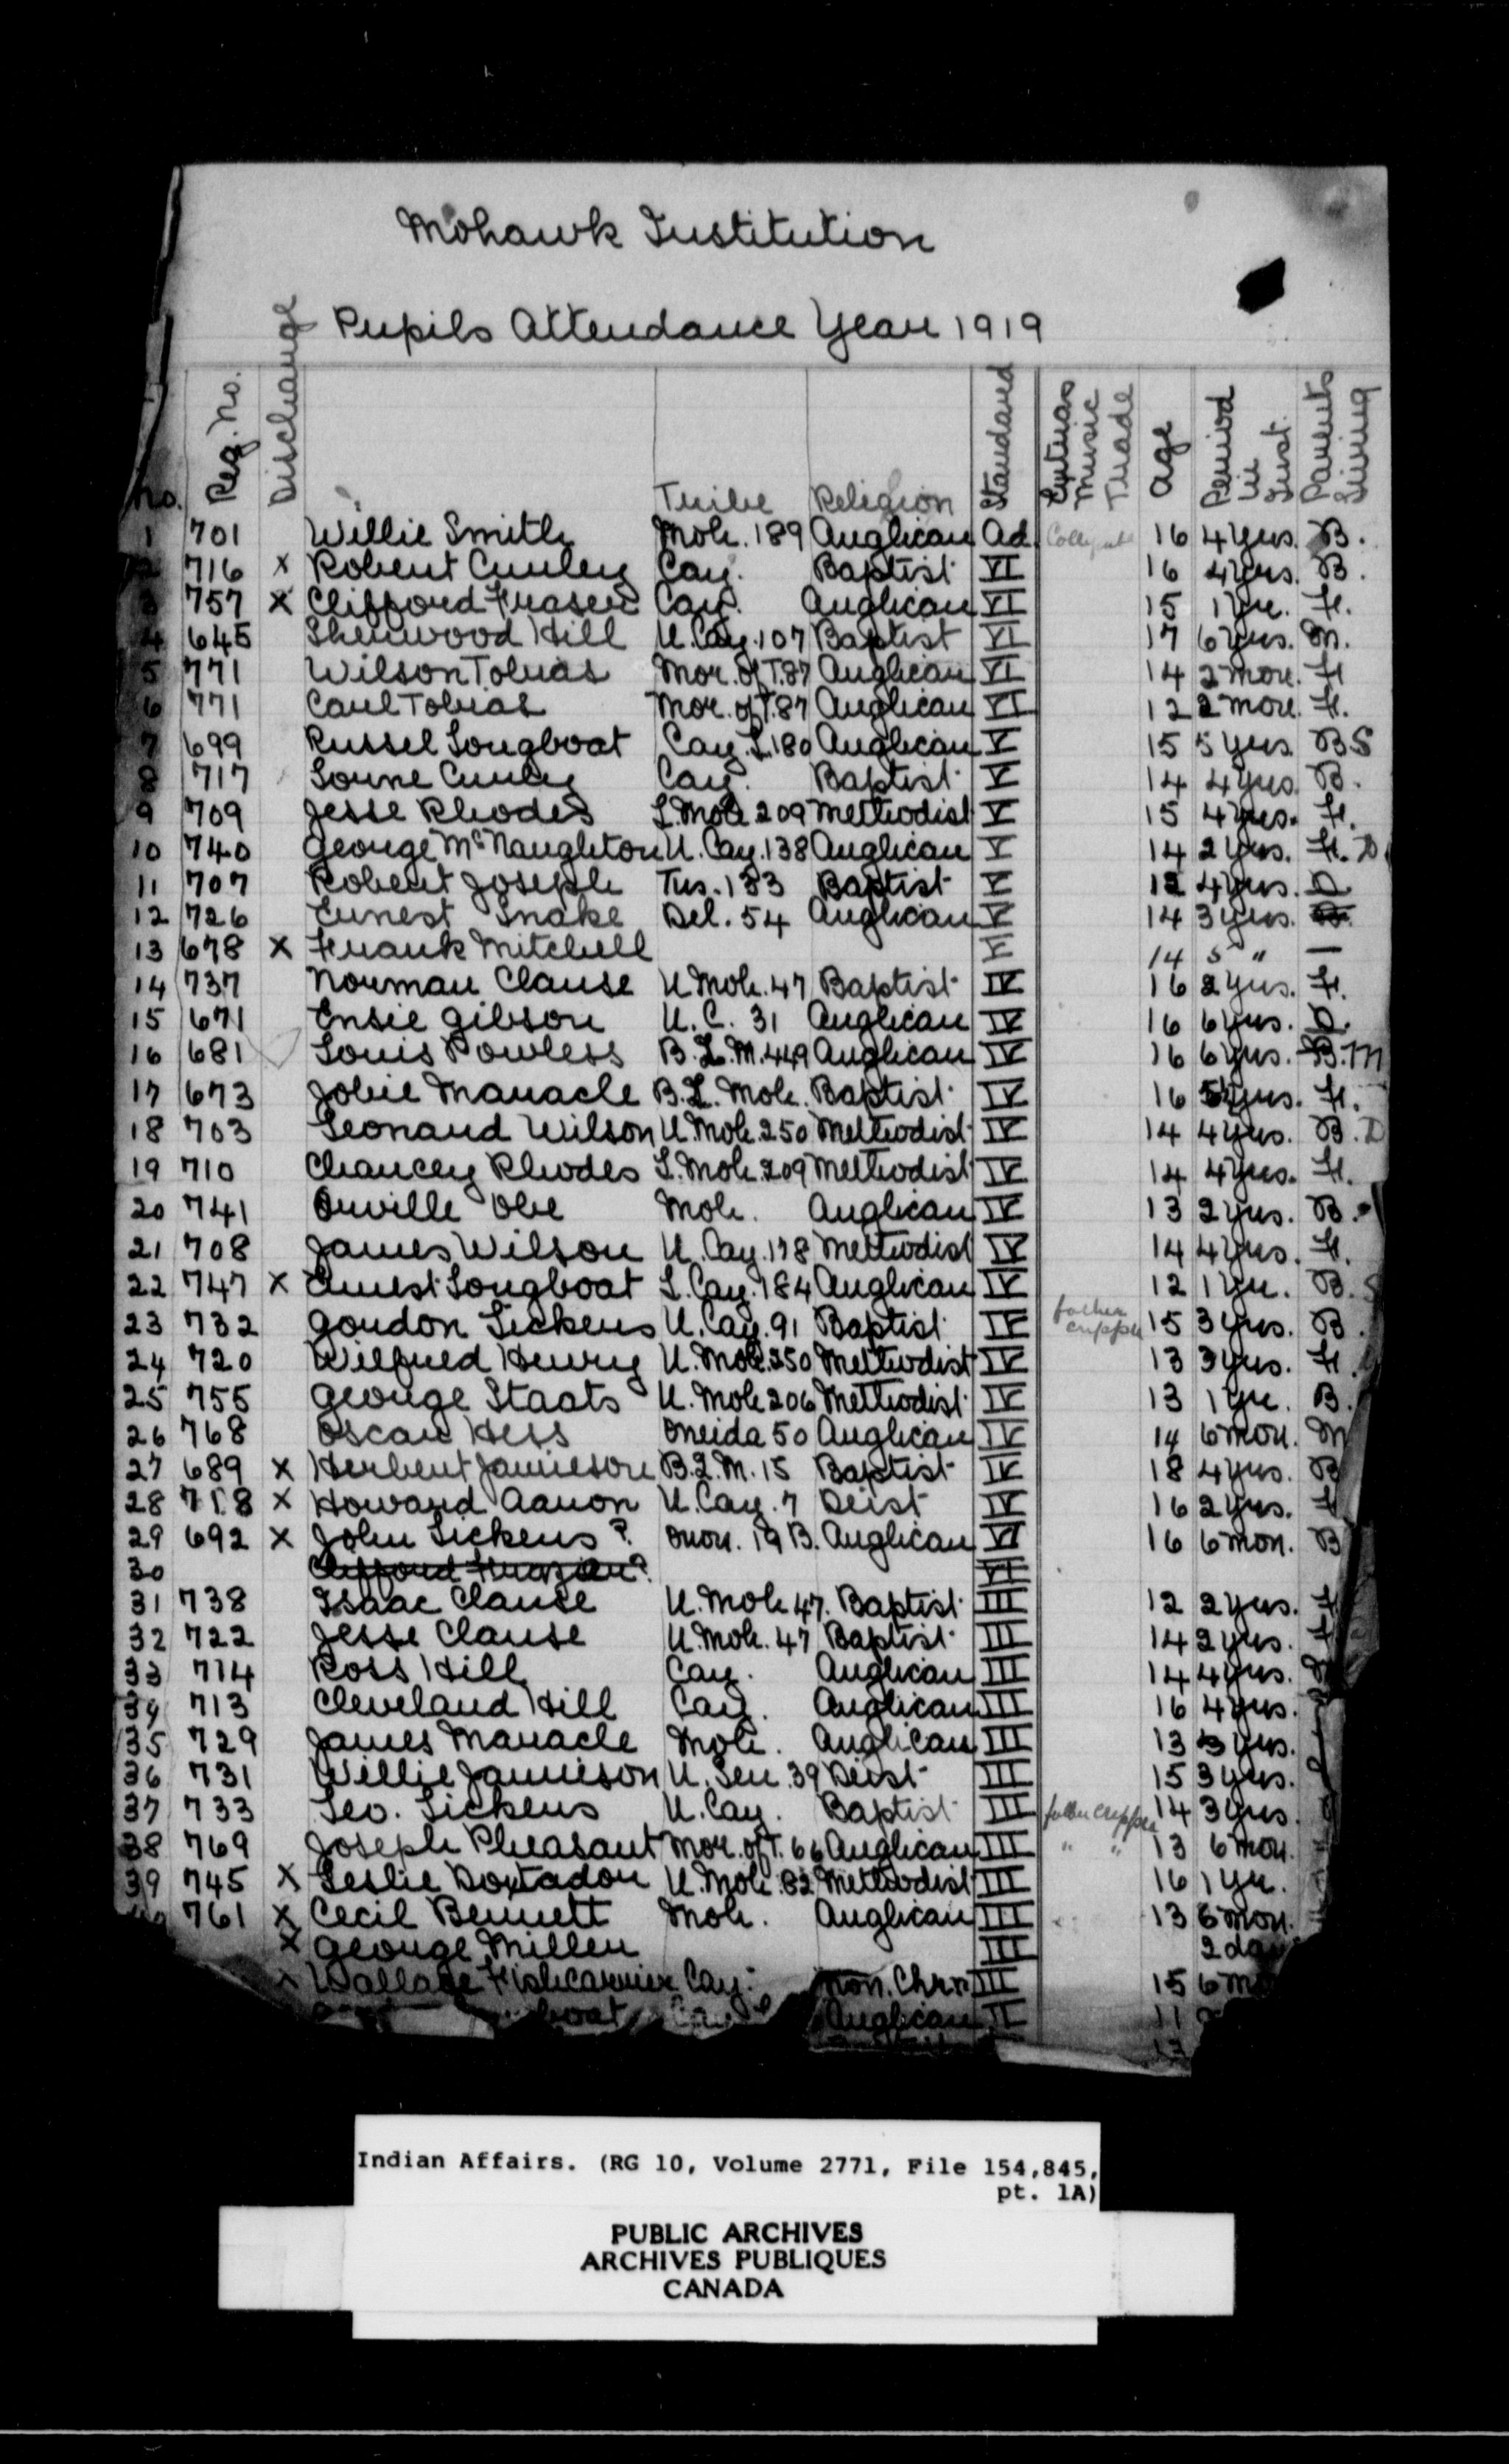 Mohawk Institution
Pupils Attendance Year 1919
No. Reg. No. Discharged Tribe Religion Standard Extras Music Trade Age Period in Inst. Parents Living
1 701 Willie Smith Moh. 189 Anglican Ad. Collegiate 16 4 yrs. B.
2 716 x Robert Curley Cay. Baptist VI 16 4 yrs. B.
3 757 x Clifford Fraser Cay. Anglican VI 15 1 yr. F.
4 645 Sherwood Hill U. Cay. 107 Baptist VI 17 6 yrs. M.
5 771 Wilson Tobias Mor. of T. 87 Anglican VI 14 2 mon. F
6 771 Carl Tobias Mor. of T. 87 Anglican VI 12 2 mon. F.
7 699 Russel Longboat Cay. L 180 Anglican V 15 5 yrs B S
8 717 Lorne Curley Cay. Baptist V 14 4 yrs. B.
9 709 Jesse Rhodes L. Moh 209 Methodist V 15 4 yrs. F.
10 740 George McNaughton U. Cay. 138 Anglican V 14 2 yrs. F. D.
11 707 Robert Joseph Tus. 133 Baptist V 12 4 yrs. O
12 726 Ernest Snake Del. 54 Anglican V 14 3 yrs.
13 678 x Frank Mitchell V 14 5 " —
14 737 Norman Clause U Moh. 47 Baptist IV 16 2 yrs. F.
15 671 Ensie Gibson U. C. 31 Anglican IV 16 6 yrs. O.
16 681 Louis Powless B. L. M. 449 Anglican IV 16 6 yrs. B. M
17 673 Jobie Maracle B. L. Moh. Baptist IV 16 5 yrs. F.
18 703 Leonard Wilson U. Moh. 250 Methodist IV 14 4 yrs. B. D
19 710 Chancey Rhodes L. Moh 209 Methodist IV 14 4 yrs. F.
20 741 Orville Obe Moh. Anglican IV 13 2 yrs. B.
21 708 James Wilson U. Cay. 178 Methodist IV 14 4 yrs. F.
22 747 x Ernest Longboat L. Cay. 184 Anglican IV 12 1 yr. B. S
23 732 Gordon Lickers U. Cay. 91 Baptist IV father cripple 15 3 yrs. B.
24 720 Wilfred Henry U. Moh. 250 Methodist IV 13 3 yrs. F
25 755 George Staats U. Moh 206 Methodist IV 13 1 yr. B.
26 768 Oscar Hess Oneida 50 Anglican IV 14 6 mon. M
27 689 x Herbert Jamieson B. L. M. 15 Baptist IV 18 4 yrs. B
28 718 x Howard Aaron U. Cay. 7 Deist IV 16 2 yrs. F
29 692 x John Lickers ? Onon. 19 B. Anglican VI 16 6 mon. B
30 Clifford Frazier? VI
31 738 Isaac Clause U. Moh 47. Baptist III 12 2 yrs. F
32 722 Jesse Clause U. Moh. 47 Baptist III 14 2 yrs. F
33 714 Ross Hill Cay. Anglican III 14 4 yrs.
34 713 Cleveland Hill Cay. Anglican III 16 4 yrs.
35 729 James Maracle Moh. Anglican III 13 3 yrs.
36 731 Willie Jamieson U. Sen. 39 Deist III 15 3 yrs.
37 733 Leo. Lickers U. Cay. Baptist III father cripple 14 3 yrs
38 769 Joseph Pheasant Mor. of T. 66 Anglican III " " 13 6 mon.
39 745 x Leslie Doxtador U. Moh. 82 Methodist III 16 1 yr.
761 x Cecil Bennett Moh. Anglican III 13 6 mon.
x George Miller III 2 day
x Wallace Fishcarrier Cay. Non. Chrn III 15 6 m
boat Anglican II 11
13
Indian Affairs. (RG 10, Volume 2771, File 154,845,
pt. 1A)
PUBLIC ARCHIVES
ARCHIVES PUBLIQUES
CANADA